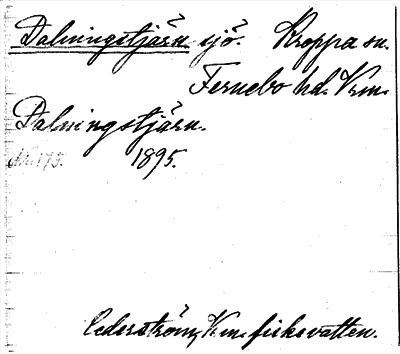 Dalningstjärn sjö. Kroppa sn.
Fernebo hd. Vrm.
Dalningstjärn.
N:o 175. 1895.
Cederström, Vrm. fiskevatten.